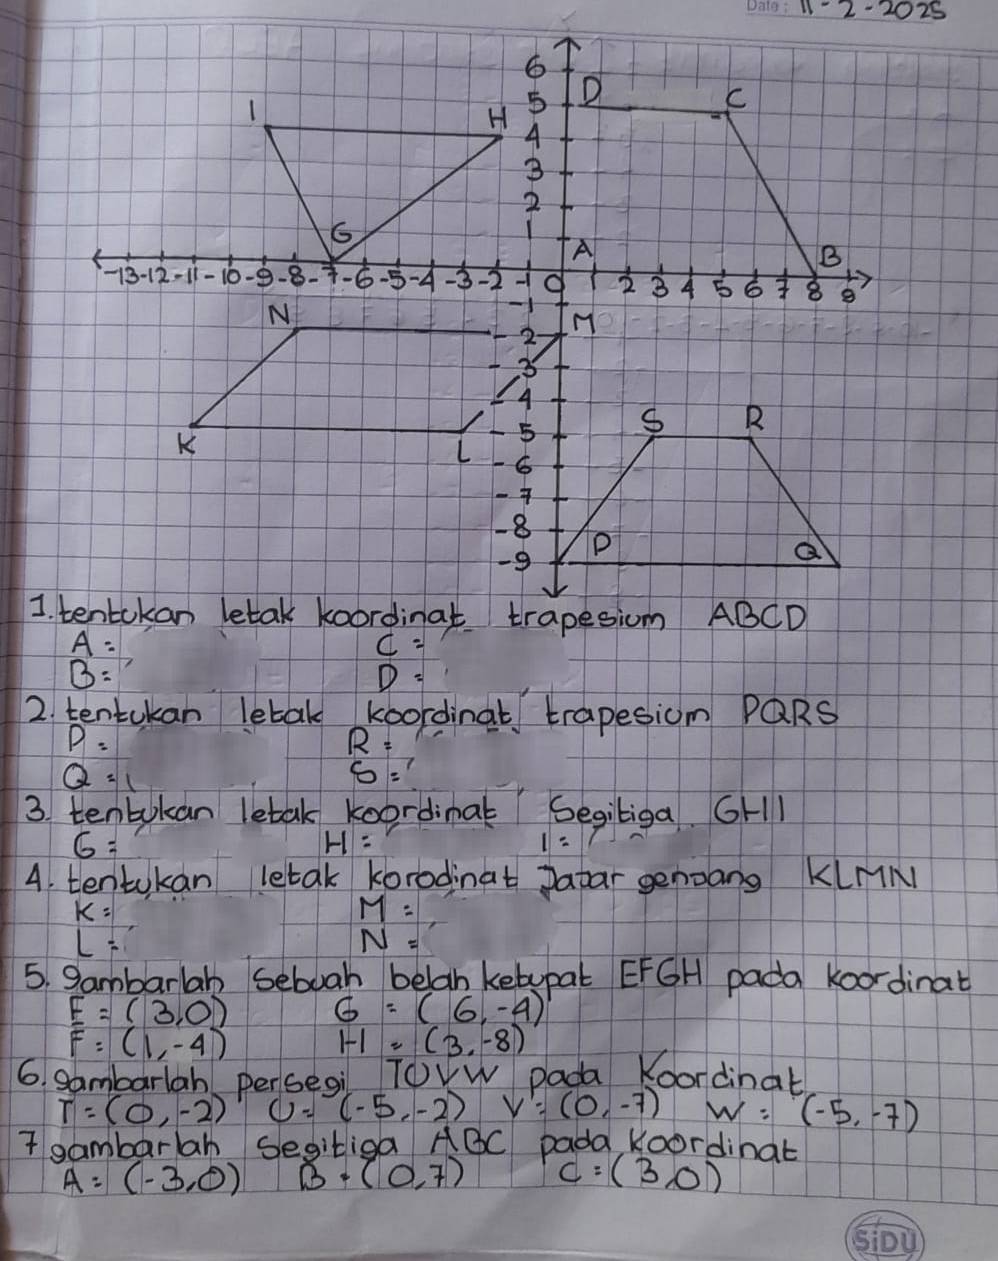 Date: 11-2-2025
6
D
5
C
I
H
4
3
2
G
1
A
B
-13-12-11-10-9-8-7-6-5-4-3-2-1 0 1 2 3 4 5 6 7 8 9
-1
N
-2
M
-3
-4
S R
K
-5
L
-6
-7
-8
P Q
-9
1. tentukan letak koordinat trapesium ABCD
A= C=
B= D=
2. tentukan letak koordinat trapesium PQRS
P= R=
Q=( S=(
3. tentukan letak koordinat Segitiga GHI
G= H= I=(
4. tentukan letak korodinat Jajar genjang KLMN
K= M=
L=( N=(
5. gambarlah sebuah belah ketupat EFGH pada koordinat
E=(3,0) G=(6,-4)
F=(1,-4) H=(3,-8)
6. gambarlah persegi TUVW pada Koordinat
T=(0,-2) U=(-5,-2) V=(0,-7) W=(-5,-7)
7 gambarlah segitiga ABC pada koordinat
A=(-3,0) B=(0,7) C=(3,0)
SiDU